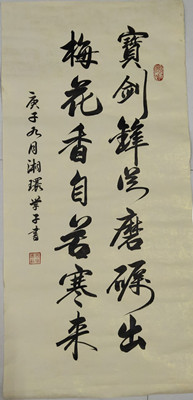 寶劍鋒從磨礪出
梅花香自苦寒来
庚子九月湘環學子書